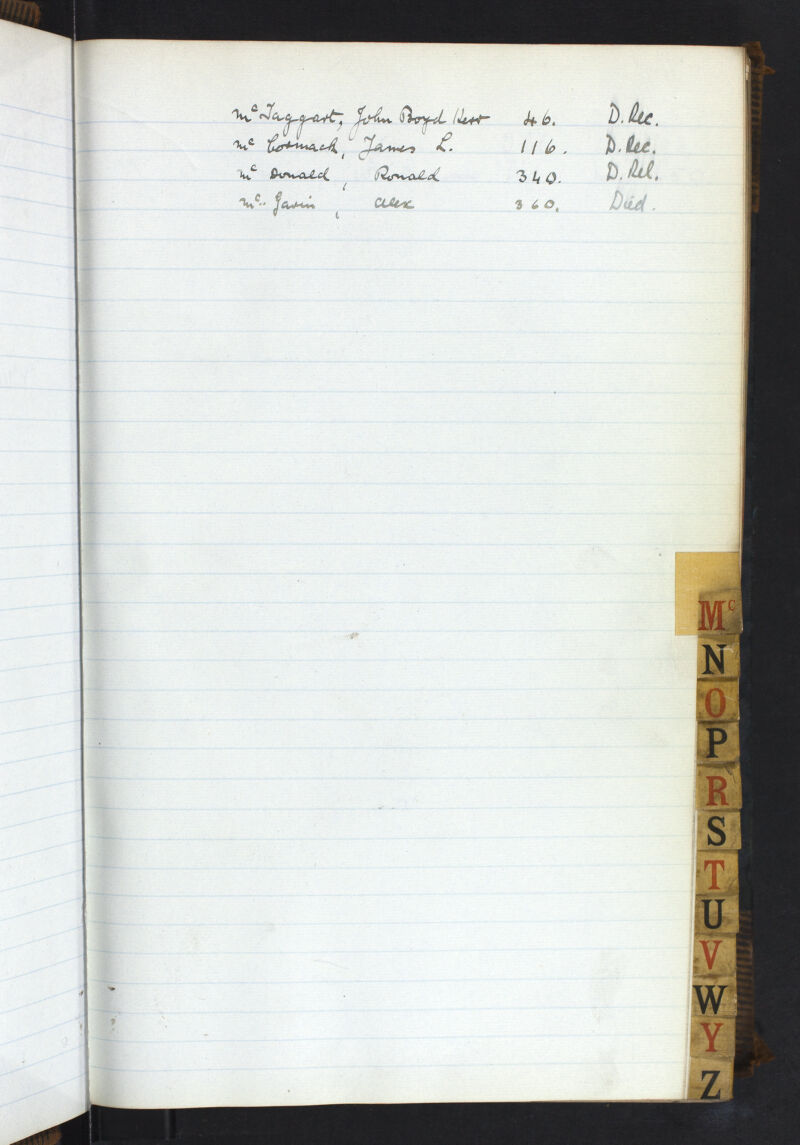 Mc Taggart, John Boyd Kerr 46. D. Rec.
Mc Cormack, James L. 116. D. Rec.
Mc Donald, Ronald 340. D. Rel.
Mc Gavin, Alex 360. Died.
Mc
N
O
P
R
S
T
U
V
W
Y
Z